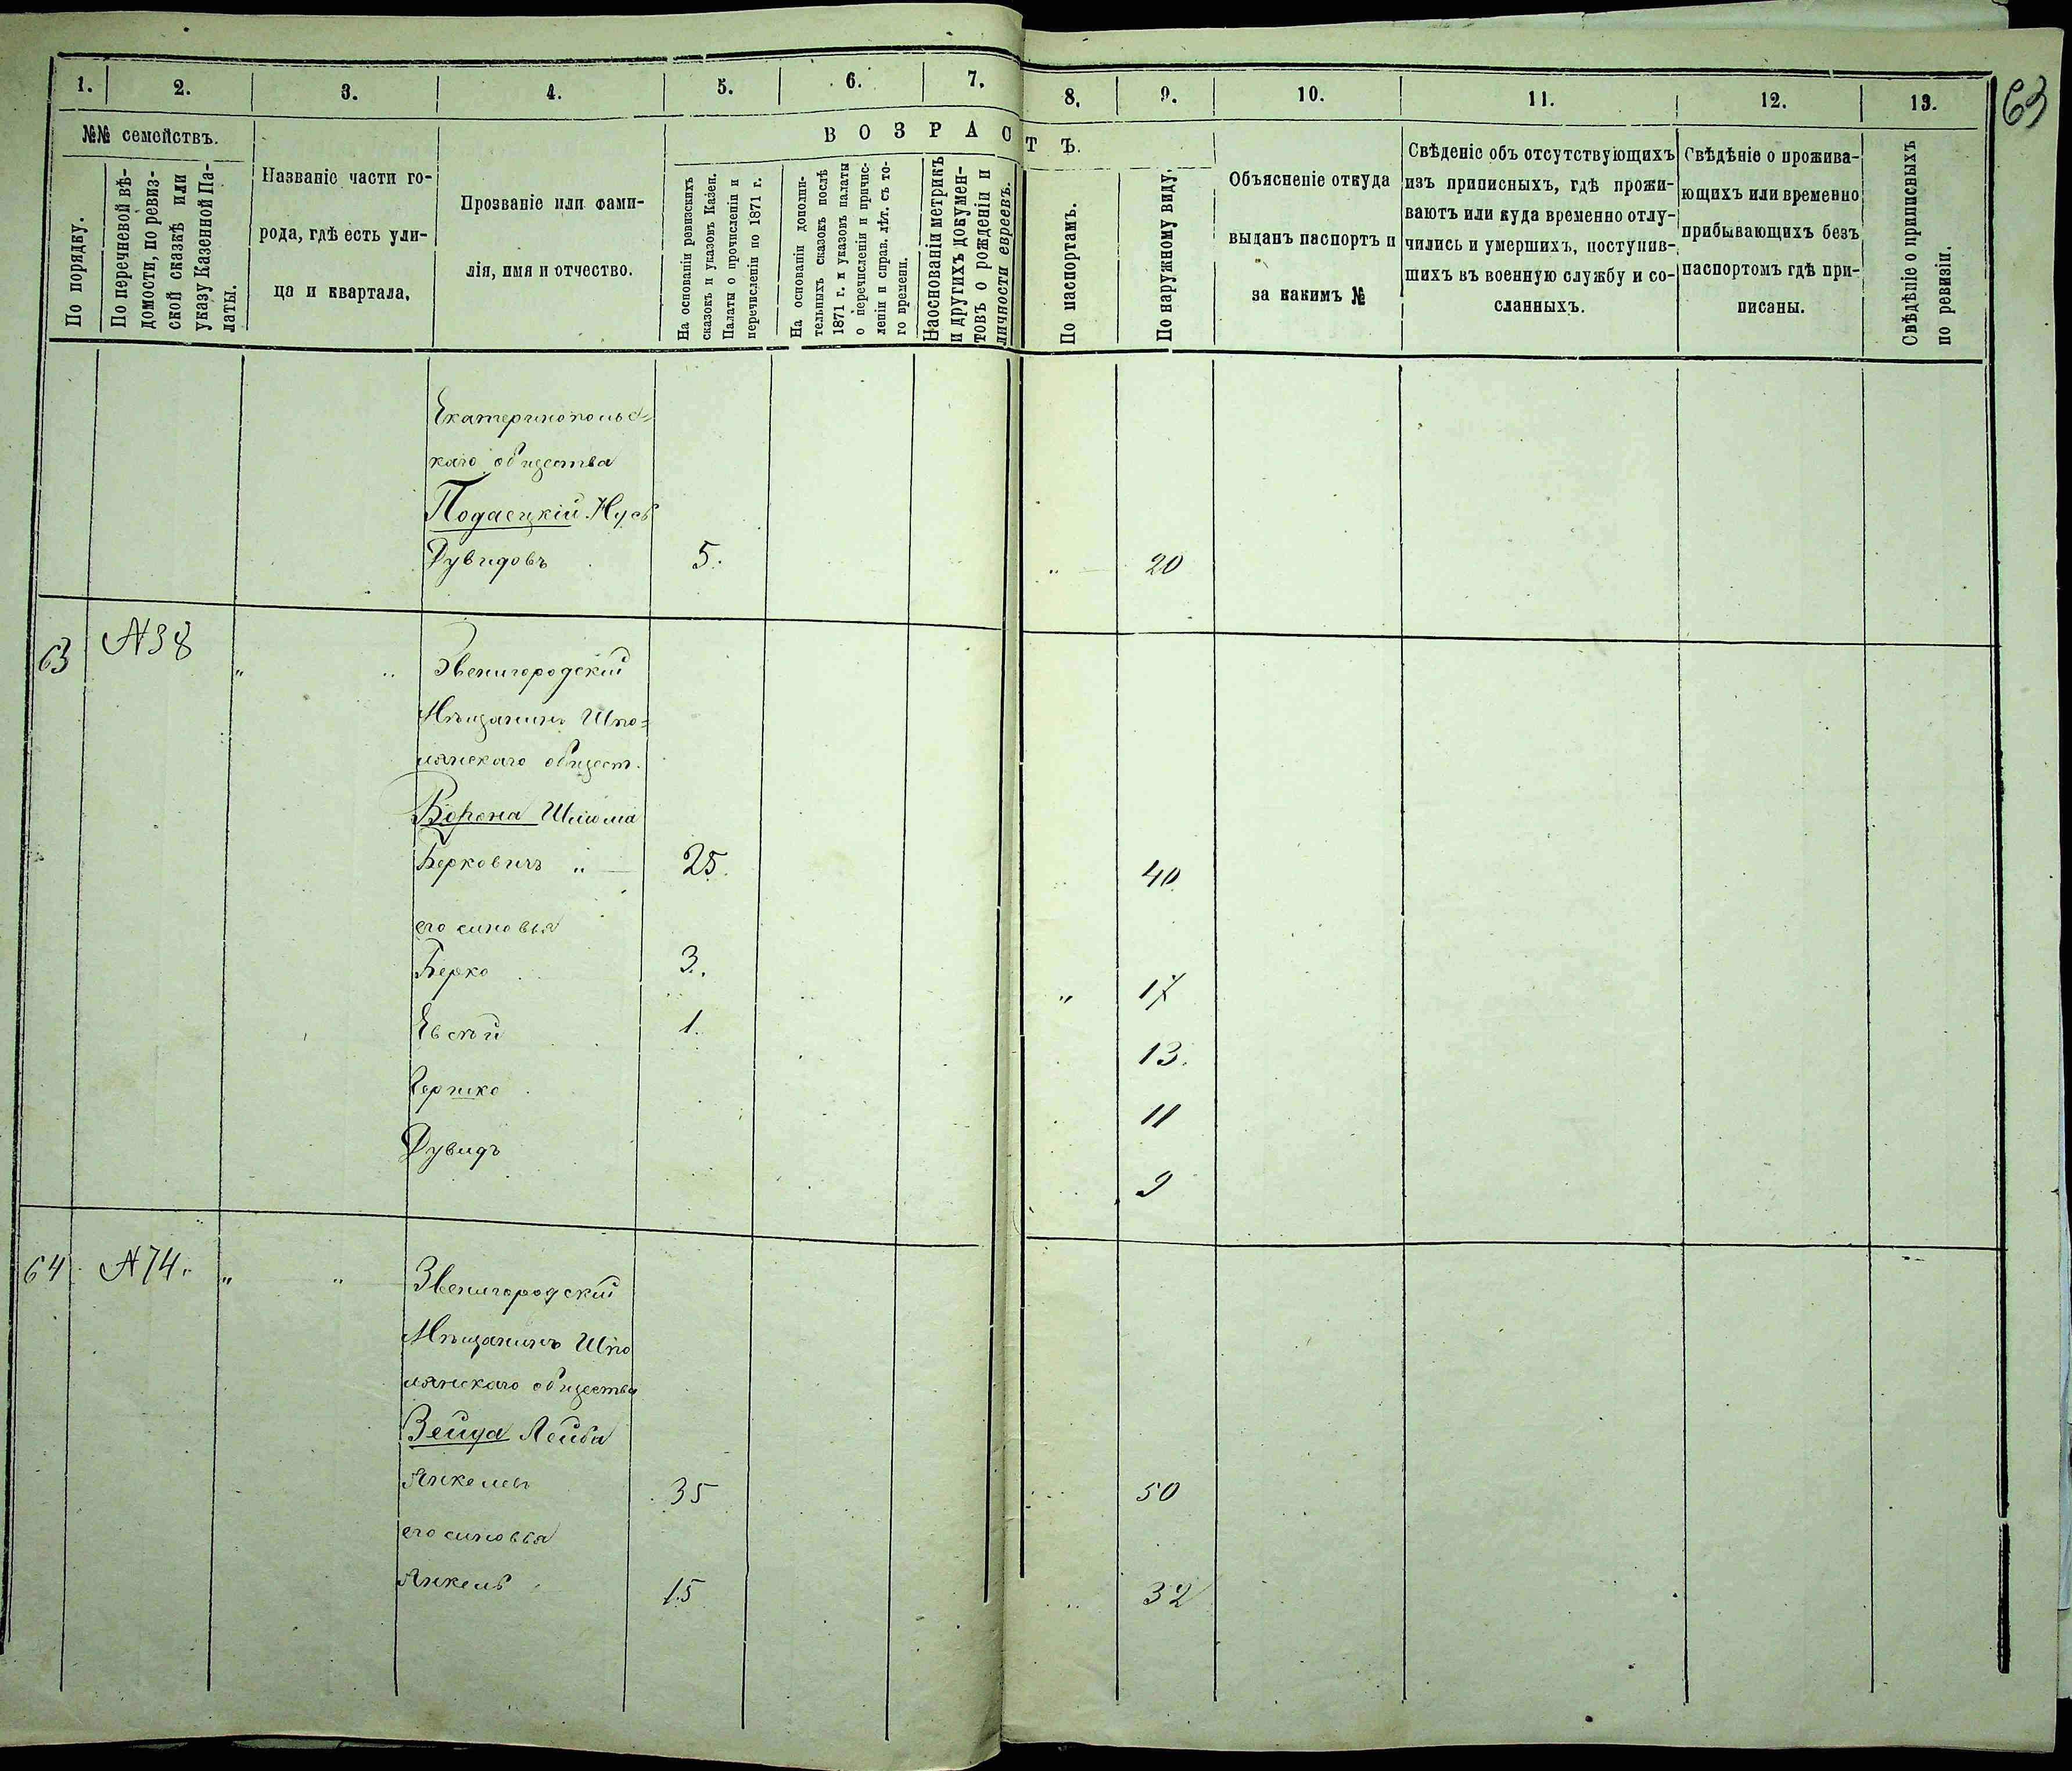 63
1. 2. 3. 4. 5. 6. 7. 8. 9. 10. 11. 12. 13.
№№ семействъ.
По порядку.
По перечневой вѣ-
домости, по ревиз-
ской сказкѣ или
указу Казенной Па-
латы.
Названіе части го-
рода, гдѣ есть ули-
ца и квартала.
Прозваніе или фами-
лія, имя и отчество.
ВОЗРАСТЪ.
На основаніи ревизскихъ
сказокъ и указовъ Казен.
Палаты о причисленіи и
перечисленіи по 1871 г.
На основаніи дополни-
тельныхъ сказокъ послѣ
1871 г. и указовъ палаты
о перечисленіи и причис-
леніи и справ. лѣт. съ то-
го времени.
На основаніи метрикъ
и другихъ докумен-
товъ о рожденіи и
личности евреевъ.
По паспортамъ.
По наружному виду.
Объясненіе откуда
выданъ паспортъ и
за какимъ №
Свѣденіе объ отсутствующихъ
изъ приписныхъ, гдѣ прожи-
ваютъ или куда временно отлу-
чились и умершихъ, поступив-
шихъ въ военную службу и со-
сланныхъ.
Свѣдѣніе о прожива-
ющихъ или временно
прибывающихъ безъ
паспортомъ гдѣ при-
писаны.
Свѣдѣніе о приписныхъ
по ревизіи.
Екатеринопольс=
каго общества
Подаецкій Нусь
Дувидовъ 5. " 20
63 №38 " " Звенигородскій
Мѣщанинъ Шпо=
лянскаго общест.
Ворона Шлиома
Берковичъ " 25. 40
его синовья
Берко 3. " 17
Евсѣй 1. 13.
Гершко 11
Дувидъ 9
64 №74. " " Звенигородскій
Мѣщанинъ Шпо
лянскаго общества
Зейда Лейба
Янкелев 35 50
его синовья
Янкель 15 32